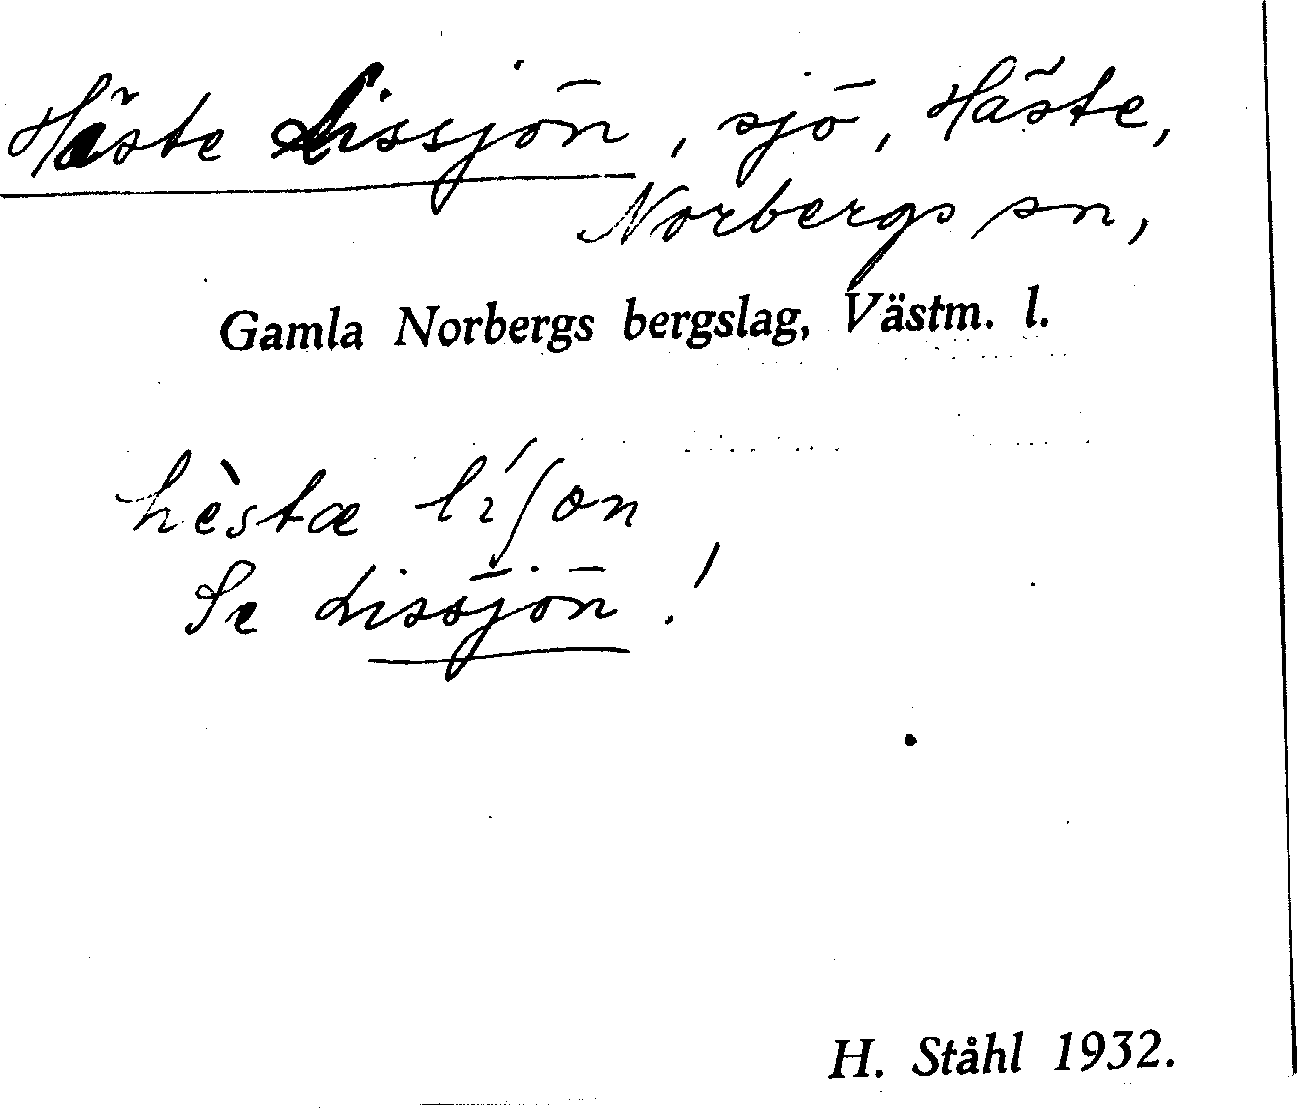 Häste Lissjön, sjö, Häste,
Norbergs sn,
Gamla Norbergs bergslag, Västm. l.
hèstæ lí∫ɵn
Se Lissjön!
H. Ståhl 1932.